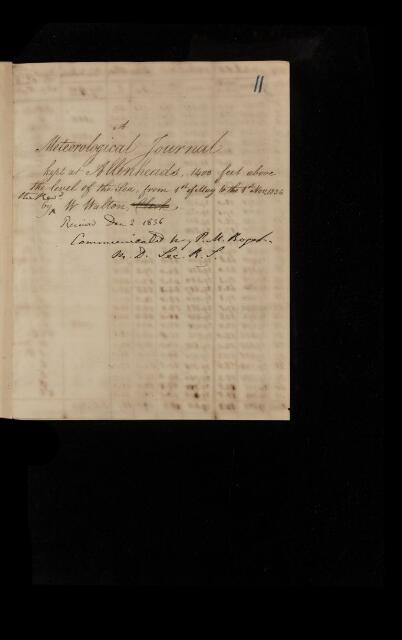 11
A
Meteorological Journal
kept at Allenheads, 1400 feet above
the level of the Sea, from 1st of May to the 1st Nov. 1836
the Revd
by W Walton, Clerk,
Received Dec 2 1836
Communicated by P. M. Roget.
M. D. Sec. R. S.